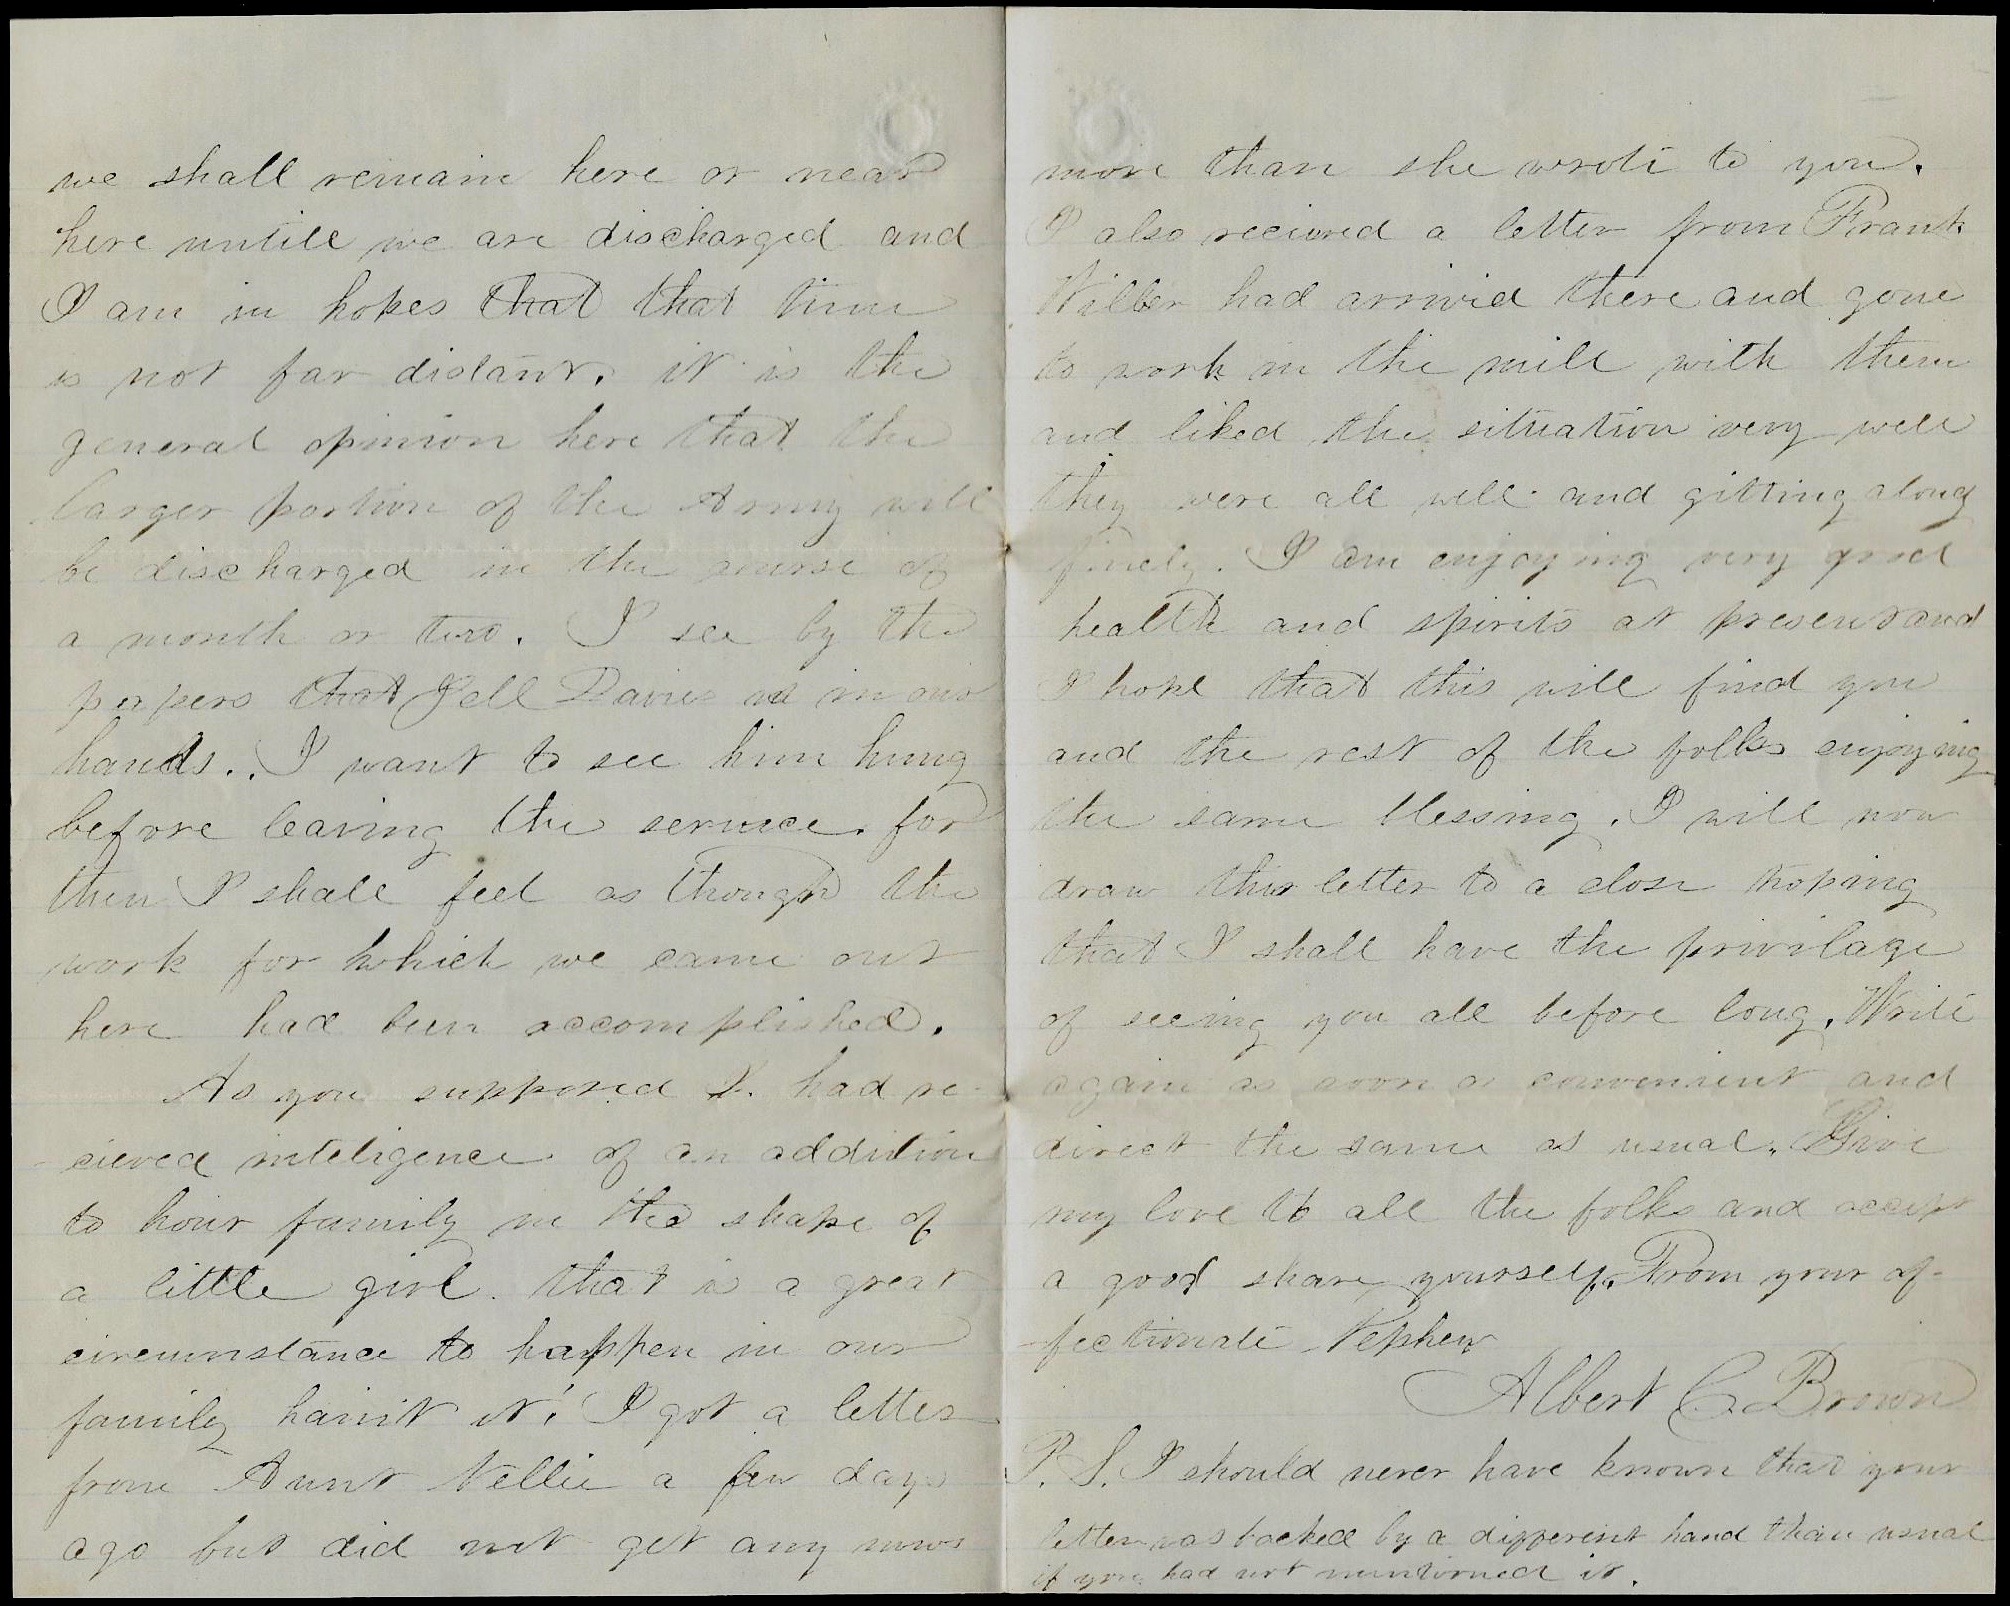 we shall remain here or near
here untill we are discharged and
I am in hopes that that time
is not far distant. it is the
general opinion here that the
larger portion of the Army will
be discharged in the course of
a month or two. I see by the
papers that Jeff Davies is in our
hands.. I want to see him hung
before leaving the service. for
then I shall feel as though the
work for which we came out
here had been accomplished.
As you supposed I had re-
cieved inteligence of an addition
to hour family in the shape of
a little girl. that is a great
circumstance to happen in our
family hain't it! I got a letter
from Aunt Nellie a few days
ago but did not get any news
more than she wrote to you.
I also recieved a letter from Frank
Wilber had arrivid there and gone
to work in the mill with them
and liked the situation very well
they were all well and gitting along
finely. I am enjoying very good
health and spirits at present and
I hope that this will find you
and the rest of the folks enjoying
the same blessing. I will now
draw this letter to a close hoping
that I shall have the privilage
of seeing you all before long. Write
again as soon as convenient and
direct the same as usual. Give
my love to all the folks and accept
a good share yourself. From your af-
fectionate Nephew
Albert C. Brown
P.S. I should never have known that your
letter was backed by a different hand than usual
if you had not mentioned it.